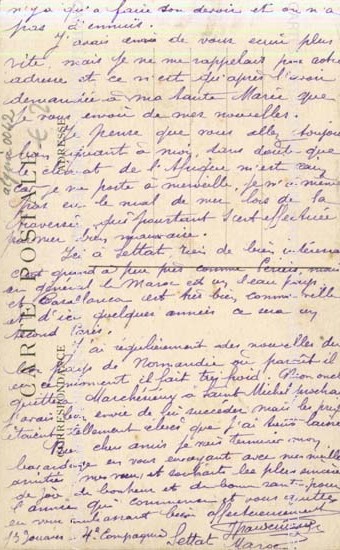 n'y a qu'à faire son devoir et on n'a
pas d'ennuis.
J'avais envie de vous écrire plus
vite, mais je ne me rappelais pas votre
adresse et ce n'est qu'après l'avoir
demandée à ma tante Marie que
je vous envoie de mes nouvelles.
Je pense que vous allez toujours
bien, quant à moi, sans doute que
le climat de l'Afrique m'est
car je me porte à merveille, je n'ai même
pas eu le mal de mer lors de la
traversée qui pourtant s'est effectuée
par mer bien mauvaise.
Ici à Settat rien de bien intéressant
c'est grand à peu près comme mais
en général le Maroc est un beau pays
et Casablanca est très bien comme ville
et d'ici quelques années ce sera un
second Paris.
J'ai régulièrement des nouvelles du
pays de Normandie où paraît il
en ce moment il fait très froid. Mon oncle
quitte à Saint Michel prochain
j'avais bien envie de lui succéder mais les prix
étaient tellement élevés que j'ai
Bien chers amis je vais terminer mon
bavardage en vous envoyant avec mes meilleures
amitiés mes vœux et souhaits les plus sincères
de joie de bonheur et de bonne santé pour
l'année qui commence et vous quitte
en vous embrassant bien affectueusement
Compagnie Settat Maroc
CARTE POSTALE
CORRESPONDANCE
ADRESSE